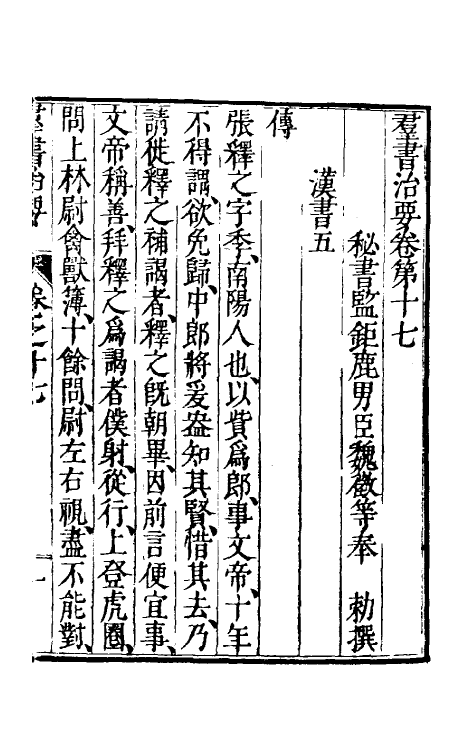 羣書治要卷第十七
秘書監鉅鹿男臣魏徵等奉 勅撰
漢書五
傳
張釋之字季、南陽人也、以貲爲郎、事文帝、十年
不得調、欲免歸、中郎將爰盎知其賢、惜其去、乃
請徙釋之補謁者、釋之既朝畢、因前言便宜事、
文帝稱善、拜釋之爲謁者僕射、從行、上登虎圈、
問上林尉禽獸簿、十餘問、尉左右視、盡不能對、
羣書治要 卷之十七 一